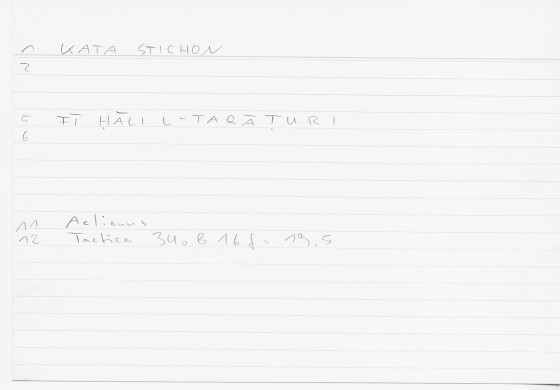 1 KATA STICHON
2
5 FĪ ḤĀLI L-TARĀṬURI
6
11 Aelianus
12 Tactica 34. B 16 f. 19.5